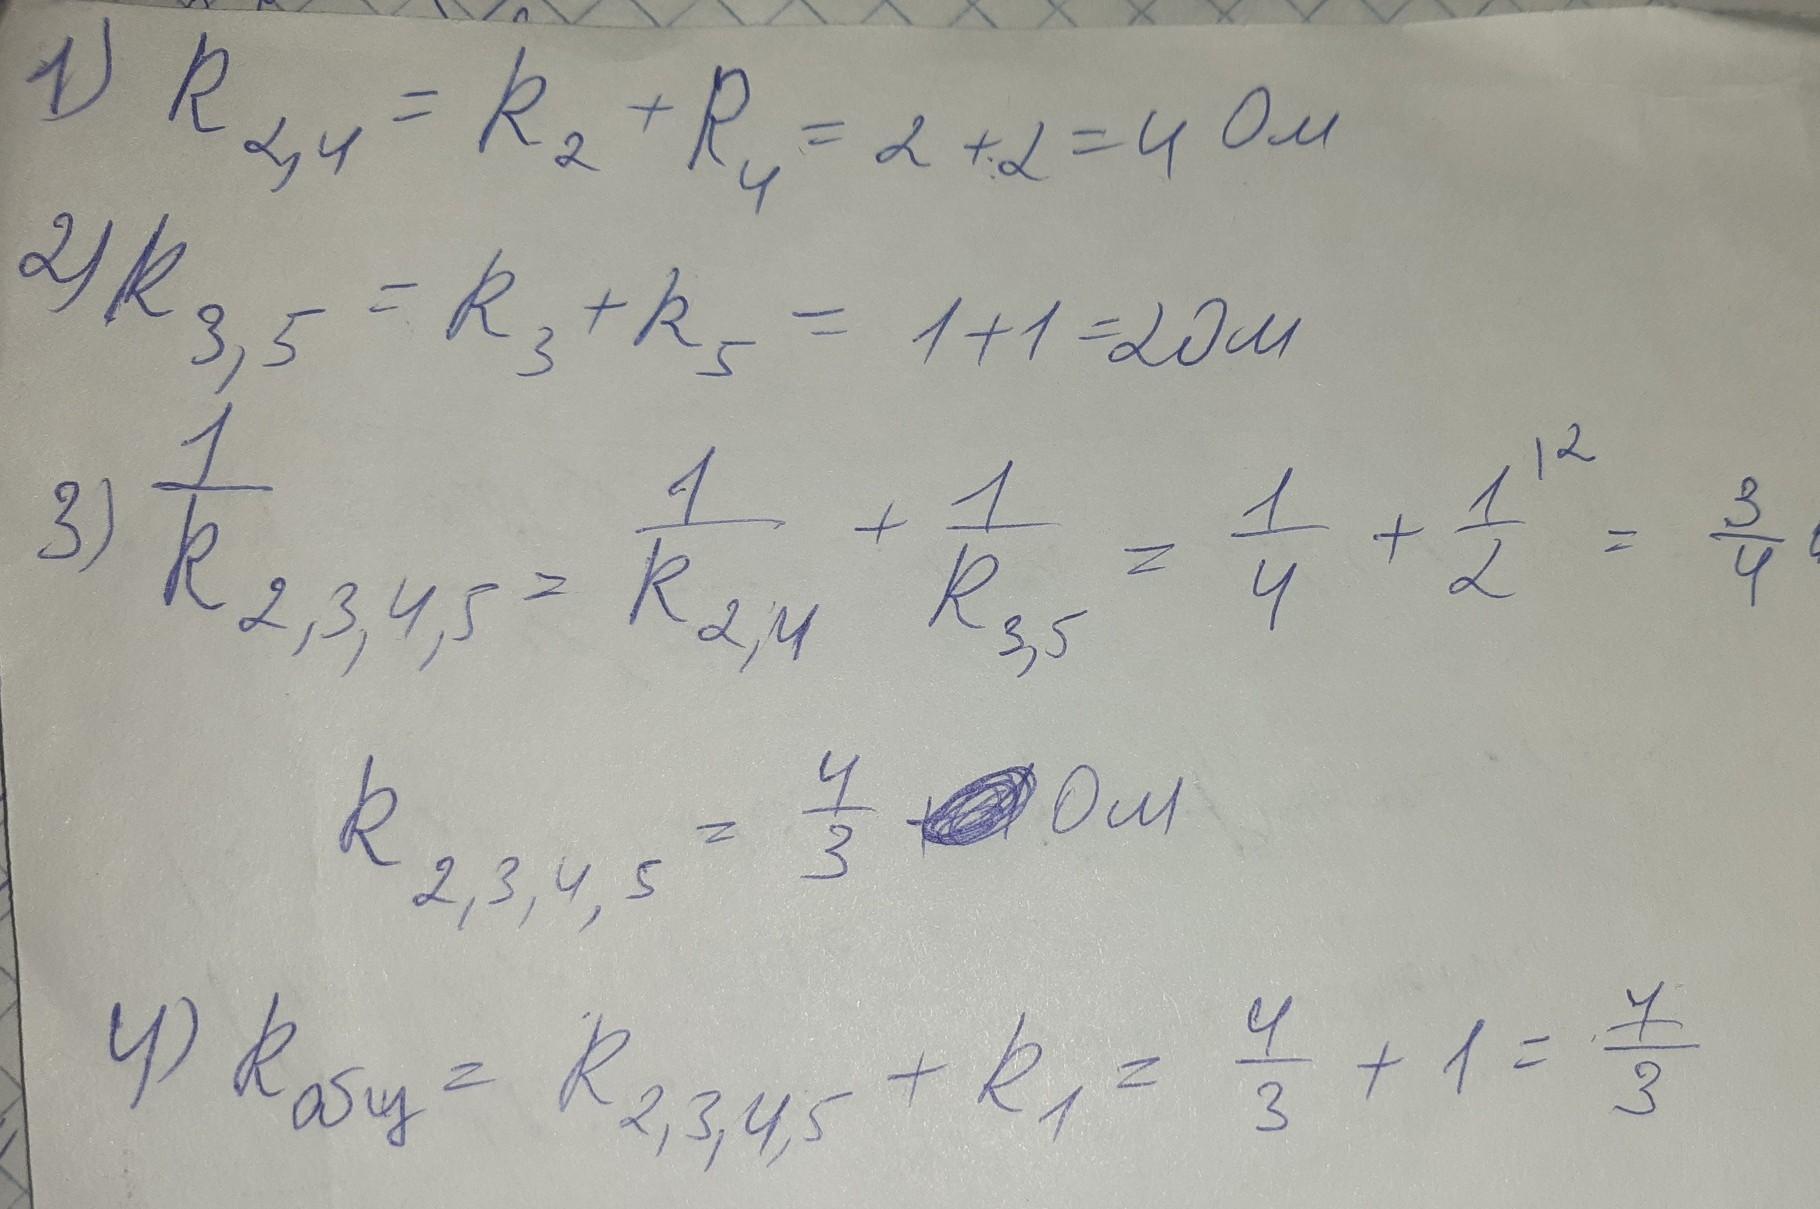 1) R2,4 = R2 + R4 = 2 + 2 = 4 Ом
2) R3,5 = R3 + R5 = 1 + 1 = 2 Ом
3) 1/R2,3,4,5 = 1/R2,4 + 1/R3,5 = 1/4 + 1/2 |2 = 3/4
R2,3,4,5 = 4/3 Ом
4) Rобщ = R2,3,4,5 + R1 = 4/3 + 1 = 7/3